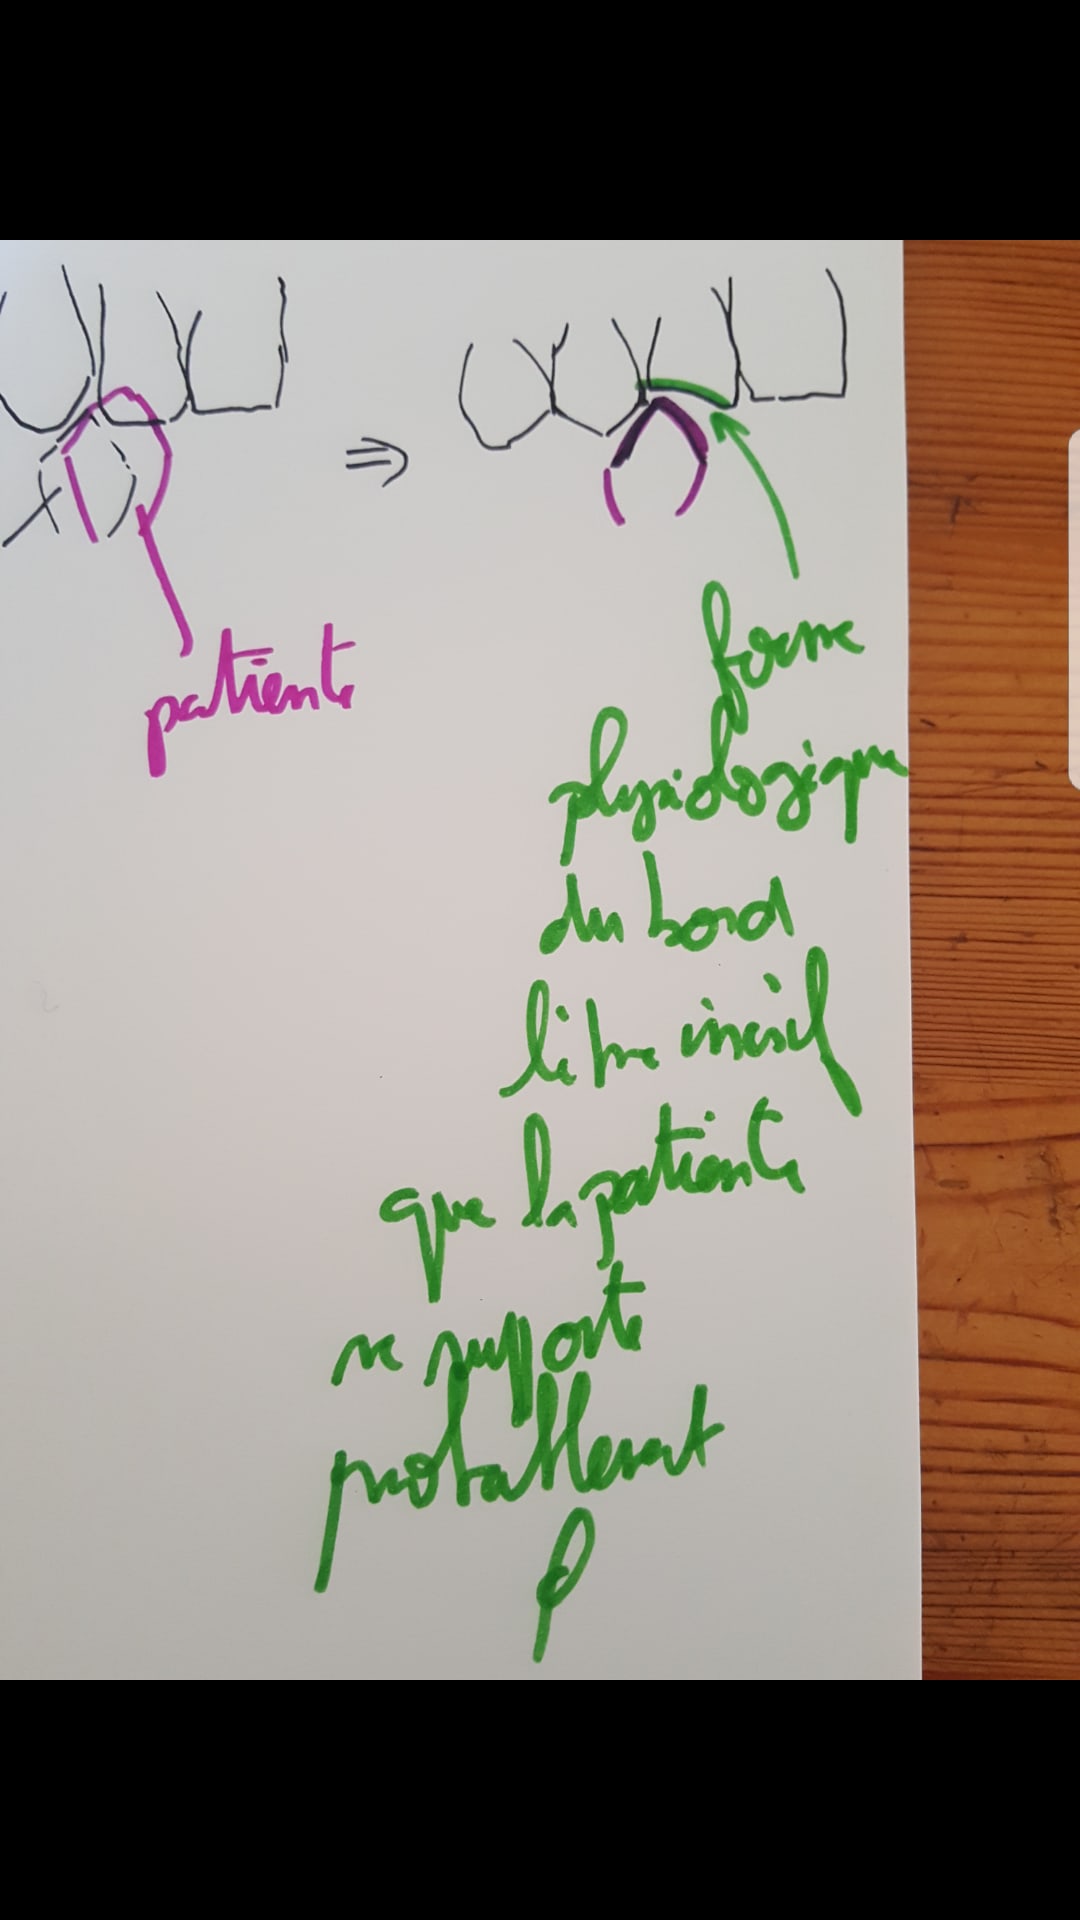 patiente
forme
physiologique
du bord
libre incisif
que la patiente
ne supporte
probablement